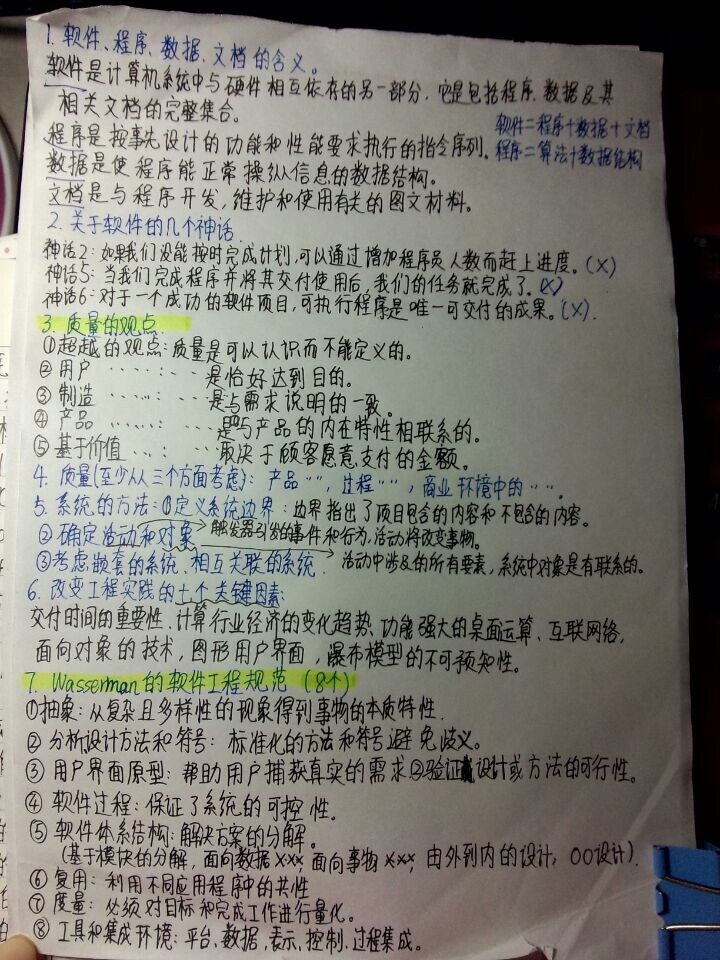 1. 软件、程序、数据、文档的含义。
软件是计算机系统中与硬件相互依存的另一部分，它是包括程序、数据及其
相关文档的完整集合。
软件=程序+数据+文档
程序是按事先设计的功能和性能要求执行的指令序列。
程序=算法+数据结构
数据是使程序能正常操纵信息的数据结构。
文档是与程序开发，维护和使用有关的图文材料。
2. 关于软件的几个神话
神话2：如果我们没能按时完成计划，可以通过增加程序员人数而赶上进度。(X)
神话5：当我们完成程序并将其交付使用后，我们的任务就完成了。(X)
神话6：对于一个成功的软件项目，可执行程序是唯一可交付的成果。(X).
3. 质量的观点
①超越的观点：质量是可以认识而不能定义的。
②用户 ……：…是恰好达到目的。
③制造 ……：…是与需求说明的一致。
④产品 ……：…是与产品的内在特性相联系的。
⑤基于价值……：…取决于顾客愿意支付的金额。
4. 质量(至少从三个方面考虑)：产品“”，过程“”，商业环境中的“”.
5. 系统的方法：①定义系统边界：边界指出了项目包含的内容和不包含的内容。
②确定活动和对象 触发器引发的事件和行为，活动将改变事物。
③考虑嵌套的系统、相互关联的系统. 活动中涉及的所有要素，系统中对象是有联系的。
6. 改变工程实践的七个关键因素：
交付时间的重要性、计算行业经济的变化趋势、功能强大的桌面运算、互联网络，
面向对象的技术，图形用户界面，瀑布模型的不可预知性。
7. Wasserman的软件工程规范（8个）
①抽象：从复杂且多样性的现象得到事物的本质特性.
②分析设计方法和符号：标准化的方法和符号避免歧义。
③用户界面原型：帮助用户捕获真实的需求②验证设计或方法的可行性。
④软件过程：保证了系统的可控性。
⑤软件体系结构：解决方案的分解。
(基于模块的分解，面向数据xxx，面向事物xxx，由外到内的设计，OO设计).
⑥复用：利用不同应用程序中的共性
⑦度量：必须对目标和完成工作进行量化。
⑧工具和集成环境：平台，数据，表示，控制，过程集成。